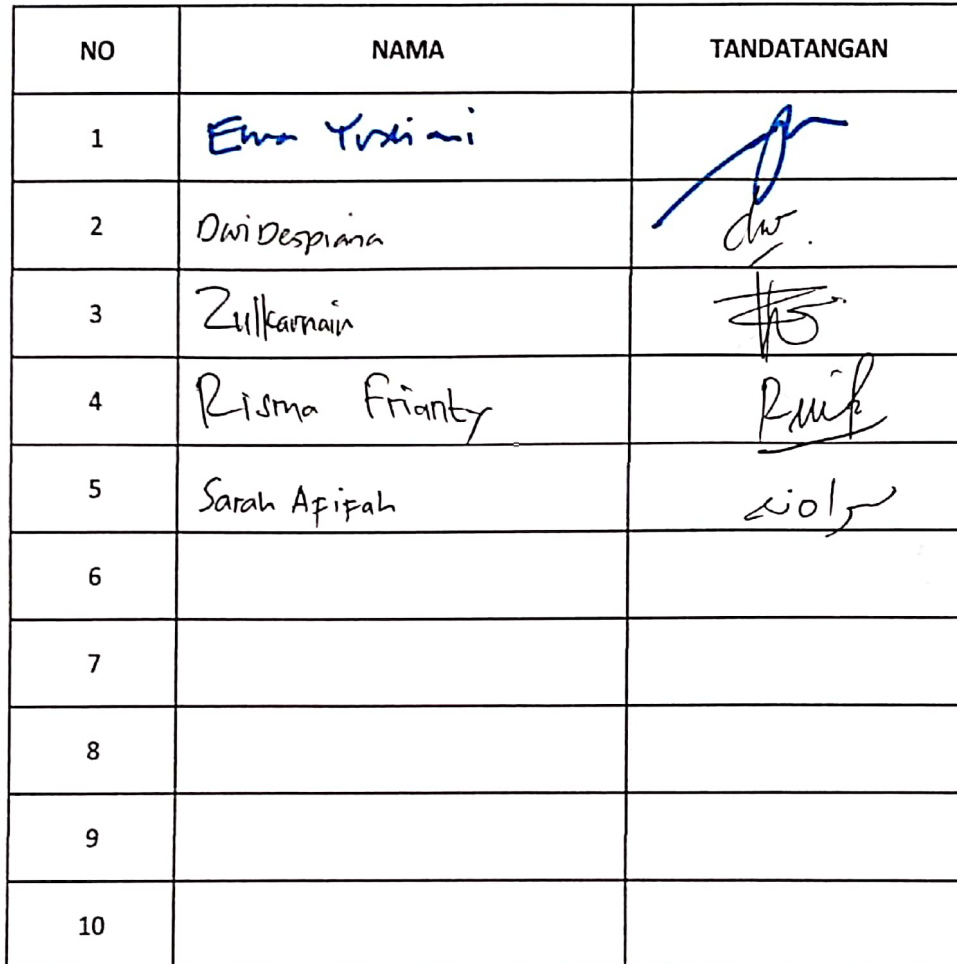 NO NAMA TANDATANGAN
1 Erna Yusliani
2 Dwi Despiana
3 Zulkarnain
4 Risma Frianty
5 Sarah Afifah
6
7
8
9
10